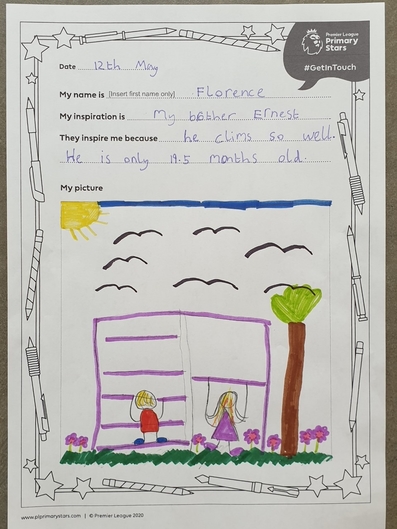 Premier League
Primary
Stars
#GetInTouch
Date 12th May
My name is [Insert first name only] Florence
My inspiration is My bother Ernest
They inspire me because he clims so well.
He is only 19.5 months old.
My picture
www.plprimarystars.com | © Premier League 2020